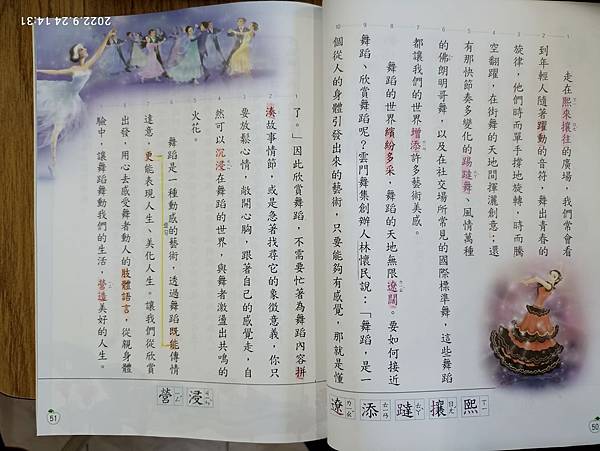 走在熙來攘往的廣場，我們常會看
到年輕人隨著躍動的音符，舞出青春的
旋律，他們時而單手撐地旋轉，時而騰
空翻躍，在街舞的天地間揮灑創意；還
有那快節奏多變化的踢躂舞、風情萬種
的佛朗明哥舞，以及在社交場所常見的國際標準舞，這些舞蹈
都讓我們的世界增添許多藝術美感。
舞蹈的世界繽紛多采，舞蹈的天地無限遼闊。要如何接近
舞蹈、欣賞舞蹈呢？雲門舞集創辦人林懷民說：「舞蹈，是一
個從人的身體引發出來的藝術，只要能夠有感覺，那就是懂
熙
攘
躂
添
遼
50
了。」因此欣賞舞蹈，不需要忙著為舞蹈內容拼
湊故事情節，或是急著找尋它的象徵意義，你只
要放鬆心情，敞開心胸，跟著自己的感覺走，自
然可以沉浸在舞蹈的世界，與舞者激盪出共鳴的
火花。
舞蹈是一種動感的藝術，透過舞蹈既能傳情
達意，更能表現人生、美化人生。讓我們從欣賞
出發，用心去感受舞者動人的肢體語言，從親身體
驗中，讓舞蹈舞動我們的生活，營造美好的人生。
浸
營
51
2022.9.24 14:31